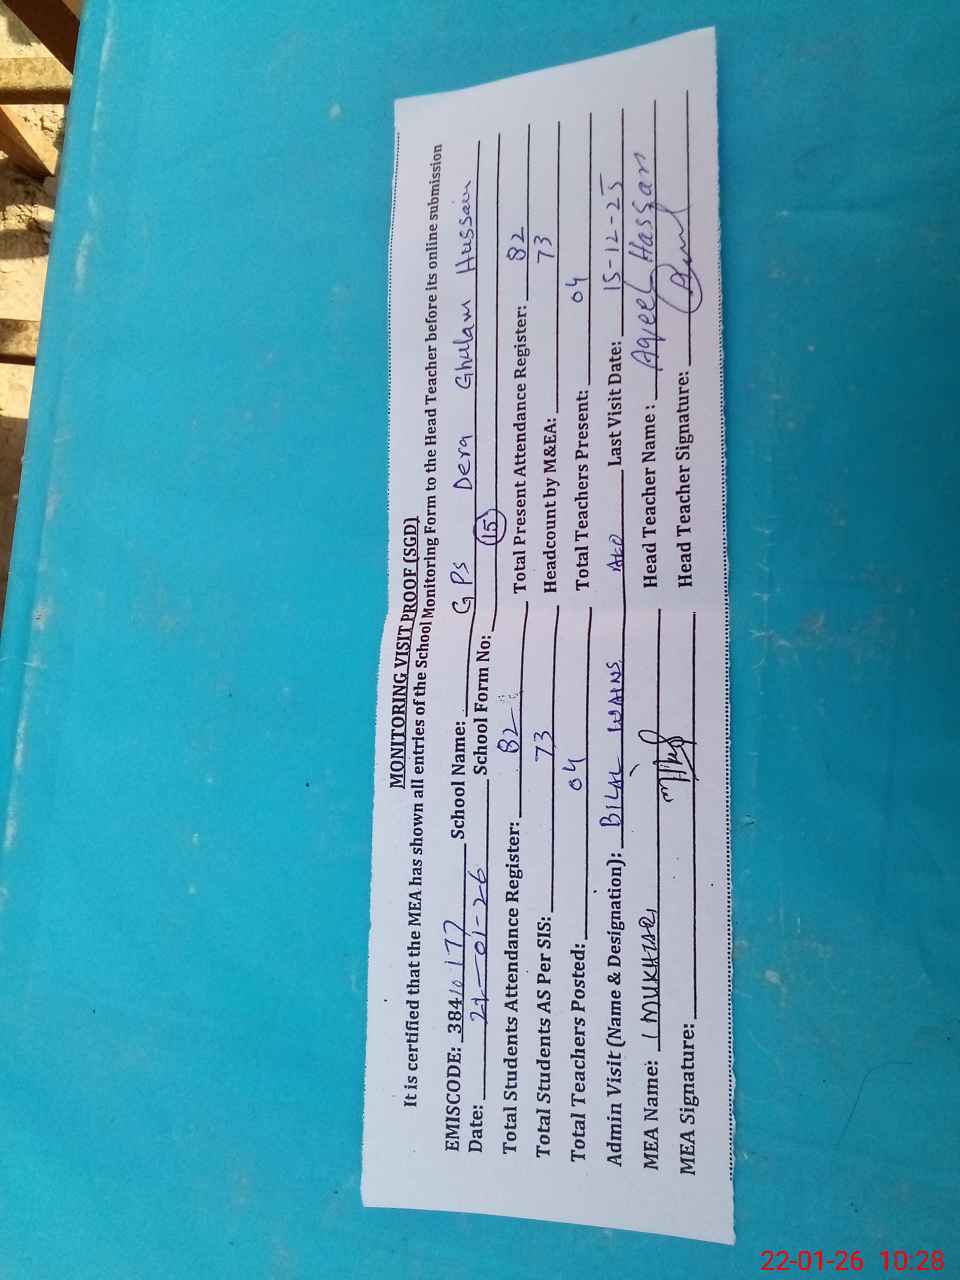 MONITORING VISIT PROOF (SGD)
It is certified that the MEA has shown all entries of the School Monitoring Form to the Head Teacher before its online submission
EMISCODE: 38410177 School Name: GPS Dera Ghulam Hussain
Date: -01-26 School Form No: 15
Total Students Attendance Register: 82 Total Present Attendance Register: 82
Total Students AS Per SIS: 73 Headcount by M&EA: 73
Total Teachers Posted: 04 Total Teachers Present: 04
Admin Visit (Name & Designation): BILAL AEO Last Visit Date: 15-12-25
MEA Name: Head Teacher Name: Aqeel Hassan
MEA Signature: Head Teacher Signature:
22-01-26 10:28